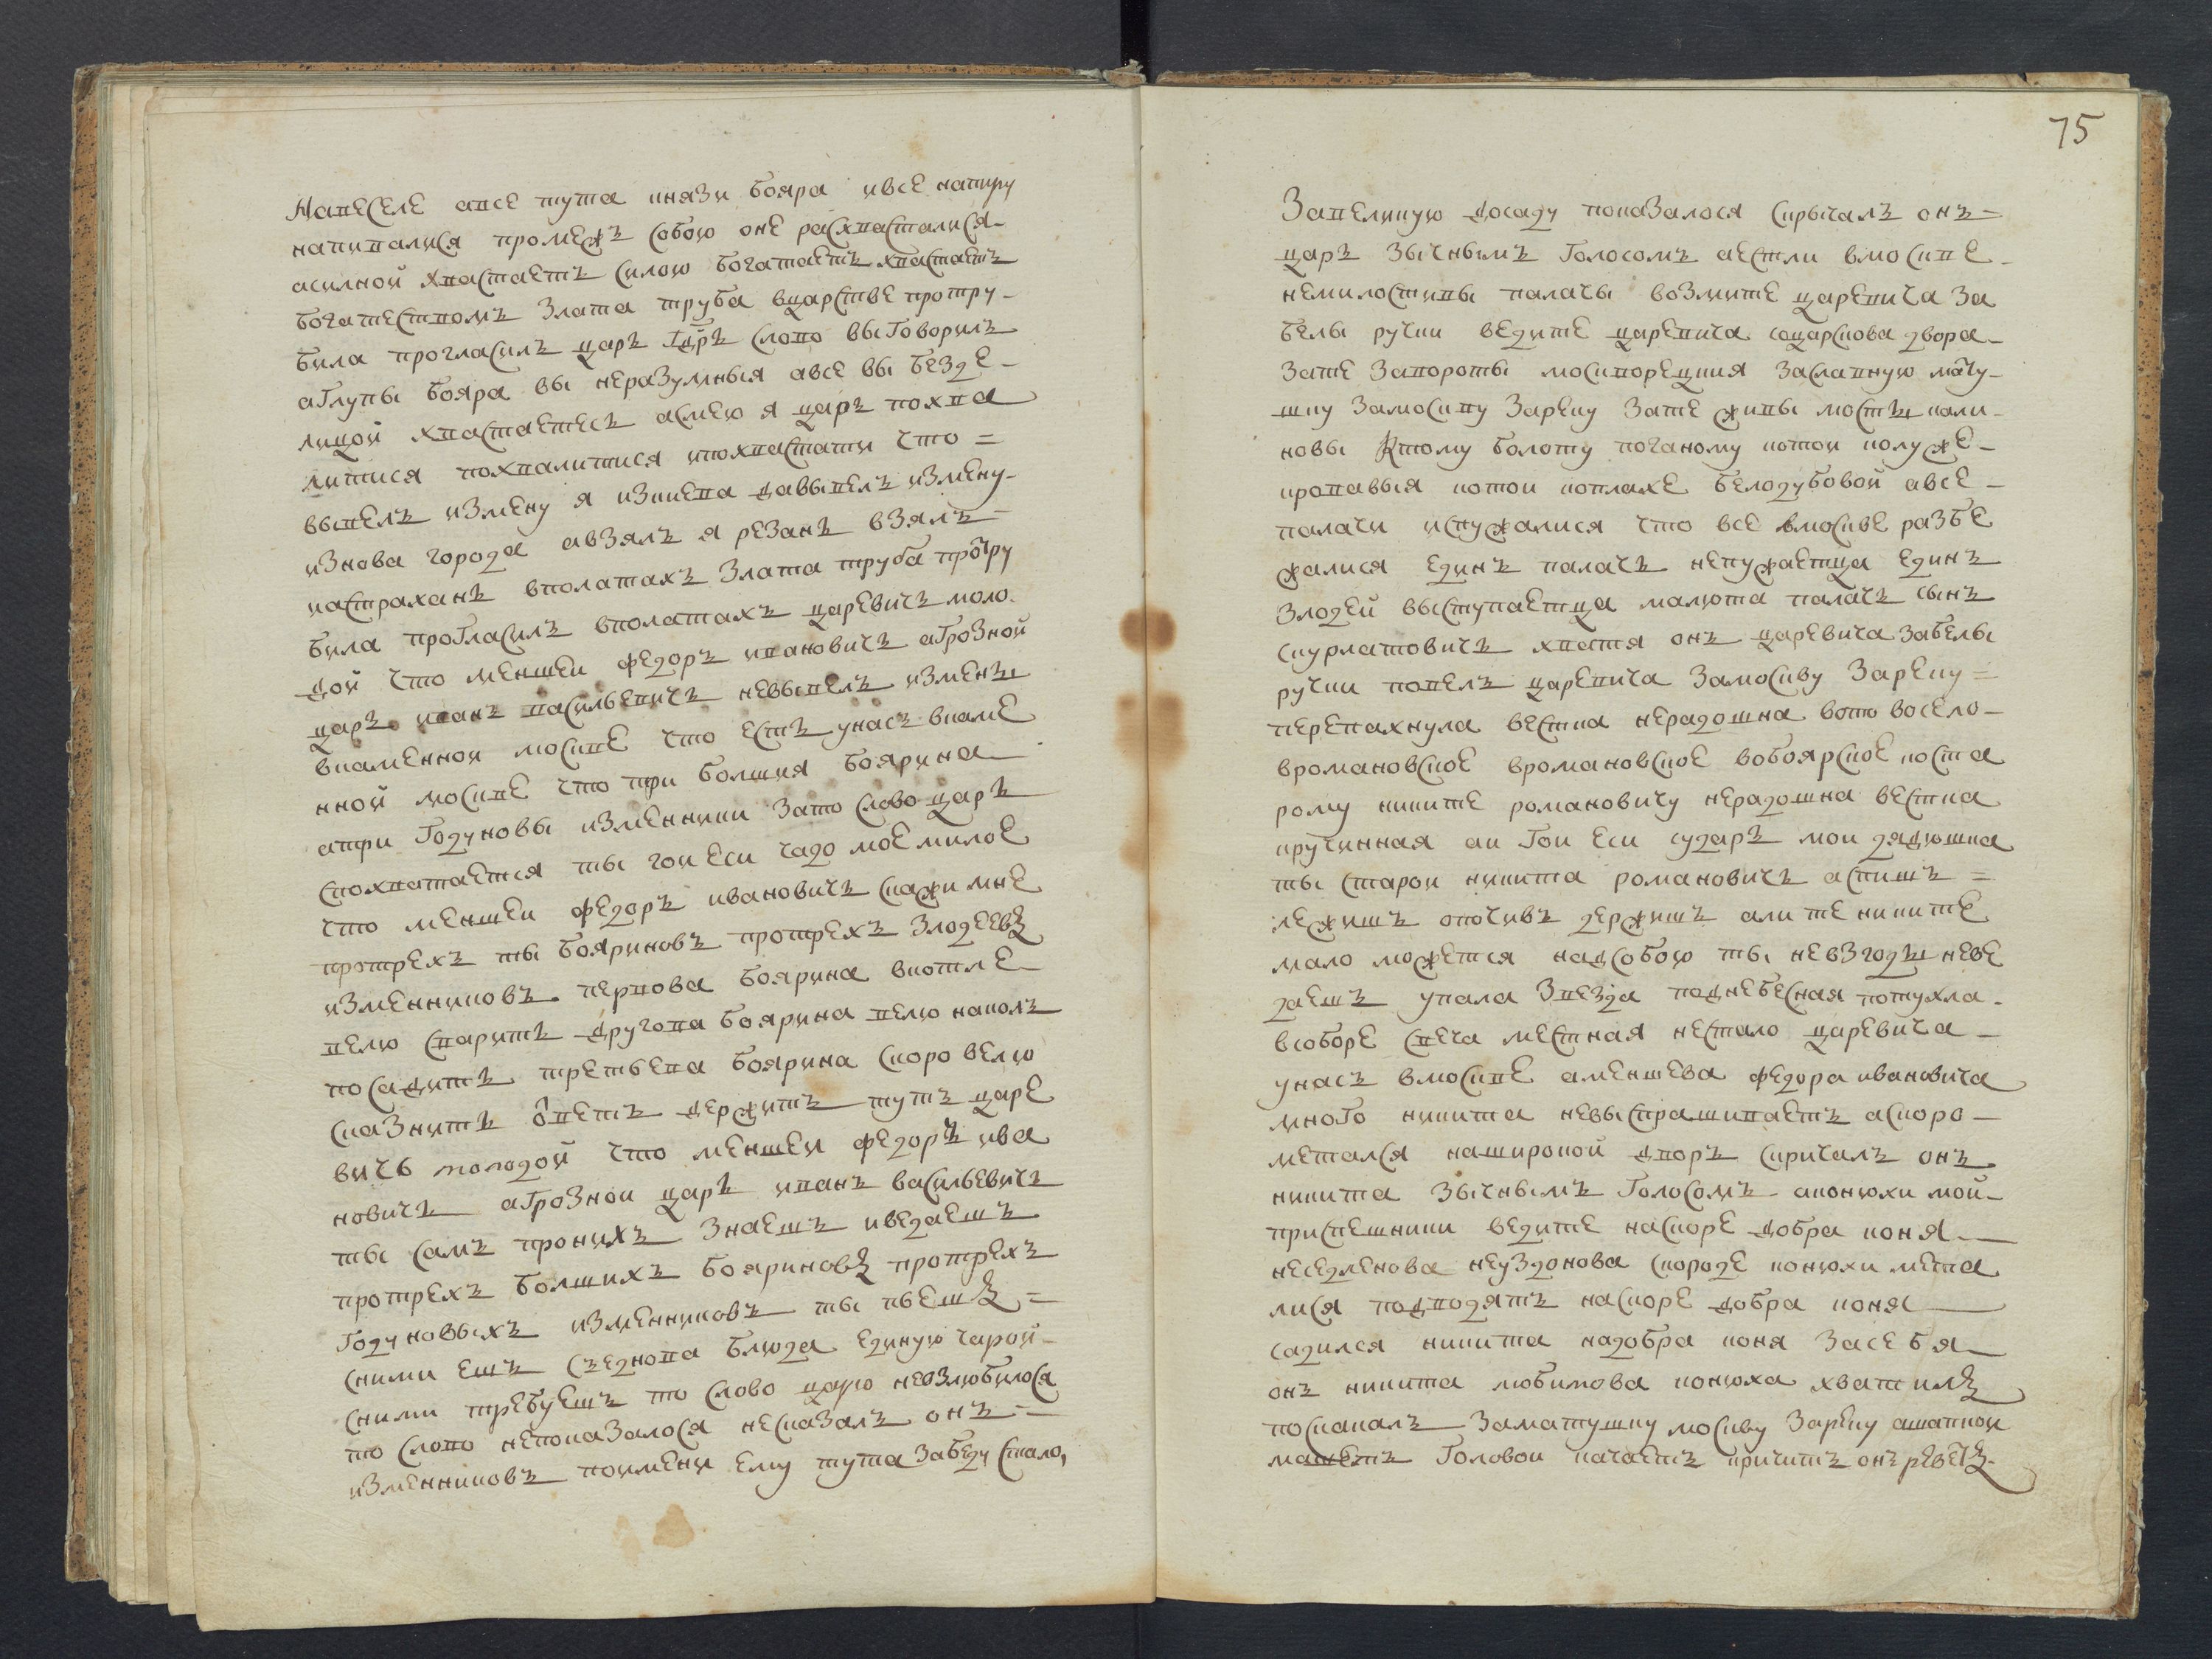 навеселе авсе тута князи бояра ивсе напиру
напивалися промежъ собою оне расхвасталися
асилной хвастаетъ силою богатаетъ хвастаетъ
богатествомъ злата труба вцарстве протру-
била прогласилъ царь гдрь слово выговорилъ
аглупы бояра вы неразумныя авсе вы безде-
лицой хвастаетесь асмею я царь похва
литися похвалитися ипохвастати что =
вывелъ измену я изкиева давывелъ измену-
изнова города авзялъ я резань взялъ =
иастрахань вполатахъ злата труба протру
била прогласилъ вполатахъ царевичь моло-
дой что меншеи федоръ ивановичь агрозной
царь иванъ васильевичь невывелъ измены
вкаменнои москве что есть унасъ вкаме
нной москве что три болшия боярина
атри годуновы изменники зато слово царь
спохватается ты гои еси чадо мое милое
что меншеи федоръ ивановичь скажи мне
протрехъ ты бояриновъ протрехъ злодеевъ
изменниковъ первова боярина вкотле
велю сварить другова боярина велю наколъ
посадить третьева боярина скоро велю
сказнить ответъ держитъ тутъ царе
вичь молодой что меншеи федоръ ива
новичь агрознои царь иванъ васильевичь
ты самъ пронихъ знаешъ иведаешъ
протрехъ болшихъ бояриновъ протрехъ
годуновыхъ изменниковъ ты пьешъ =
сними ешъ съеднова блюда единую чарой-
сними требуешъ то слово царю невзлюбилося
то слово непоказалося несказалъ онъ =
изменниковъ поимени ему тута забеду стало,
75
Завеликую досаду показалося скрычалъ онъ =
царь зычнымъ голосомъ аестли вмоскве
немилостивы палачы возмите царевича за
белы ручки ведите царевича соцарскова двора
зате завороты москворецкия заславную мату-
шку замоскву зареку зате живы мосты кали-
новы ктому болоту поганому котои колуже-
кровавыя котои коплахе белодубовой авсе-
палачи испужалися что все вмоскве разбе
жалися единъ палачь непужаетца единъ
злодей выступаетца малюта палачь сынъ
скурлатовичь хватя онъ царевича забелы
ручки повелъ царевича замоскву зареку =
перепахнула вестка нерадошна вото восело-
вромановское вромановское вобоярское коста
рому никите романовичу нерадошна вестка
кручинная аи гои еси сударь мои дядюшка
ты старои никита романовичь аспишъ =
лежишъ опочивъ держишъ али те никите
мало можется надсобою ты невзгоды неве
даешъ упала звезда поднебесная потухла
всоборе свеча местная нестало царевича
унасъ вмоскве аменшева федора ивановича
много никита невыспрашиваетъ аскоро-
метался наширокой дворъ скричалъ онъ
никита зычнымъ голосомъ аконюхи мой-
приспешники ведите наскоре добра коня
неседленова неузданова скороде конюхи мета
лися подводятъ наскоре добра коня
садился никита надобра коня засебя
онъ никита любимова конюха хватилъ
поскакалъ заматушку москву зареку ашапкои
машетъ головои качаетъ кричитъ онъ реветъ